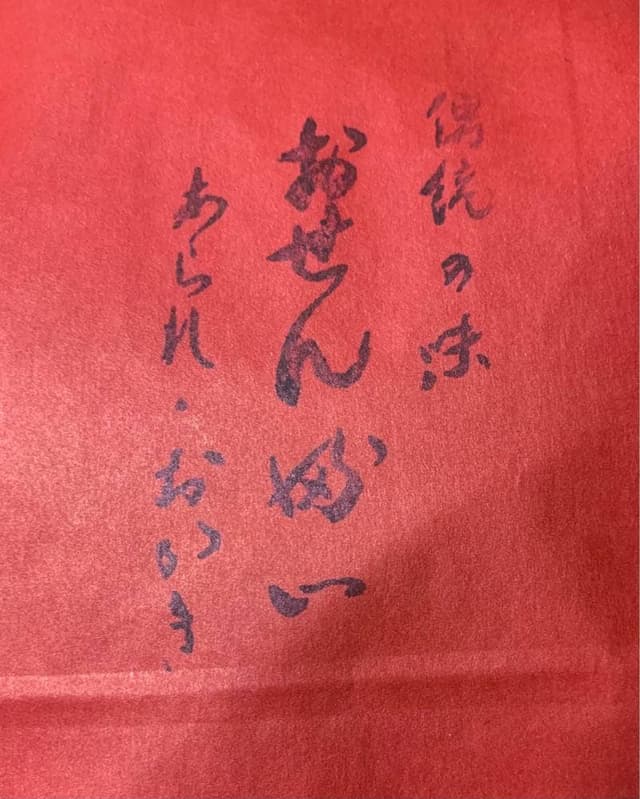 伝統の味
おせんべい
あられ・おかき